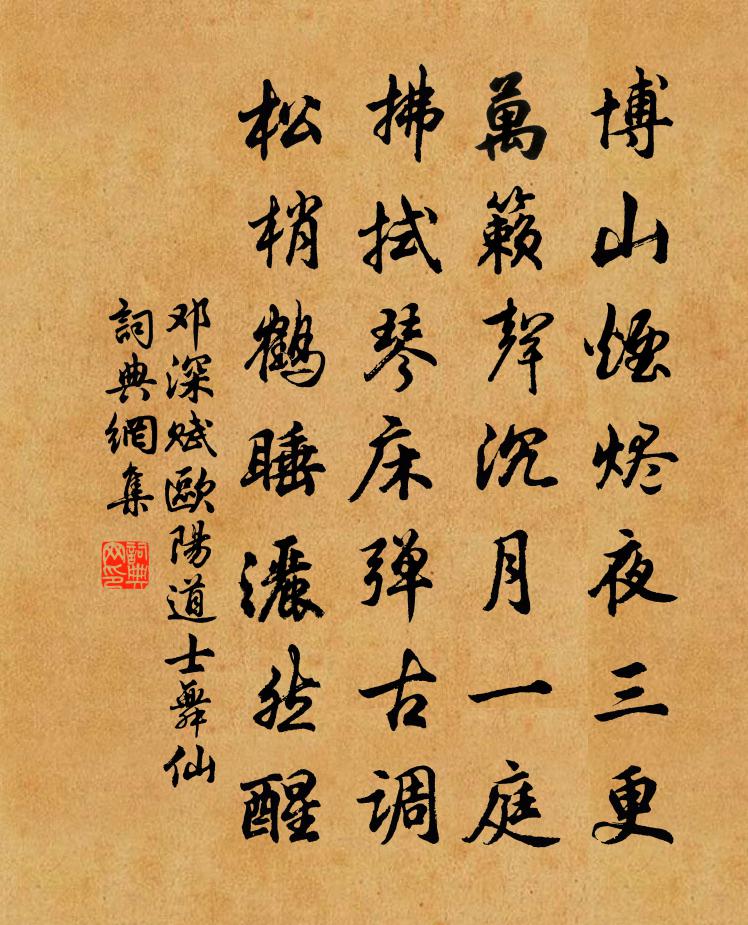 博山煙烬夜三更
萬籟聲沉月一庭
拂拭琴床弹古调
松梢鶴睡灑然醒
邓深赋歐陽道士舞仙
詞典網集
詞典网印